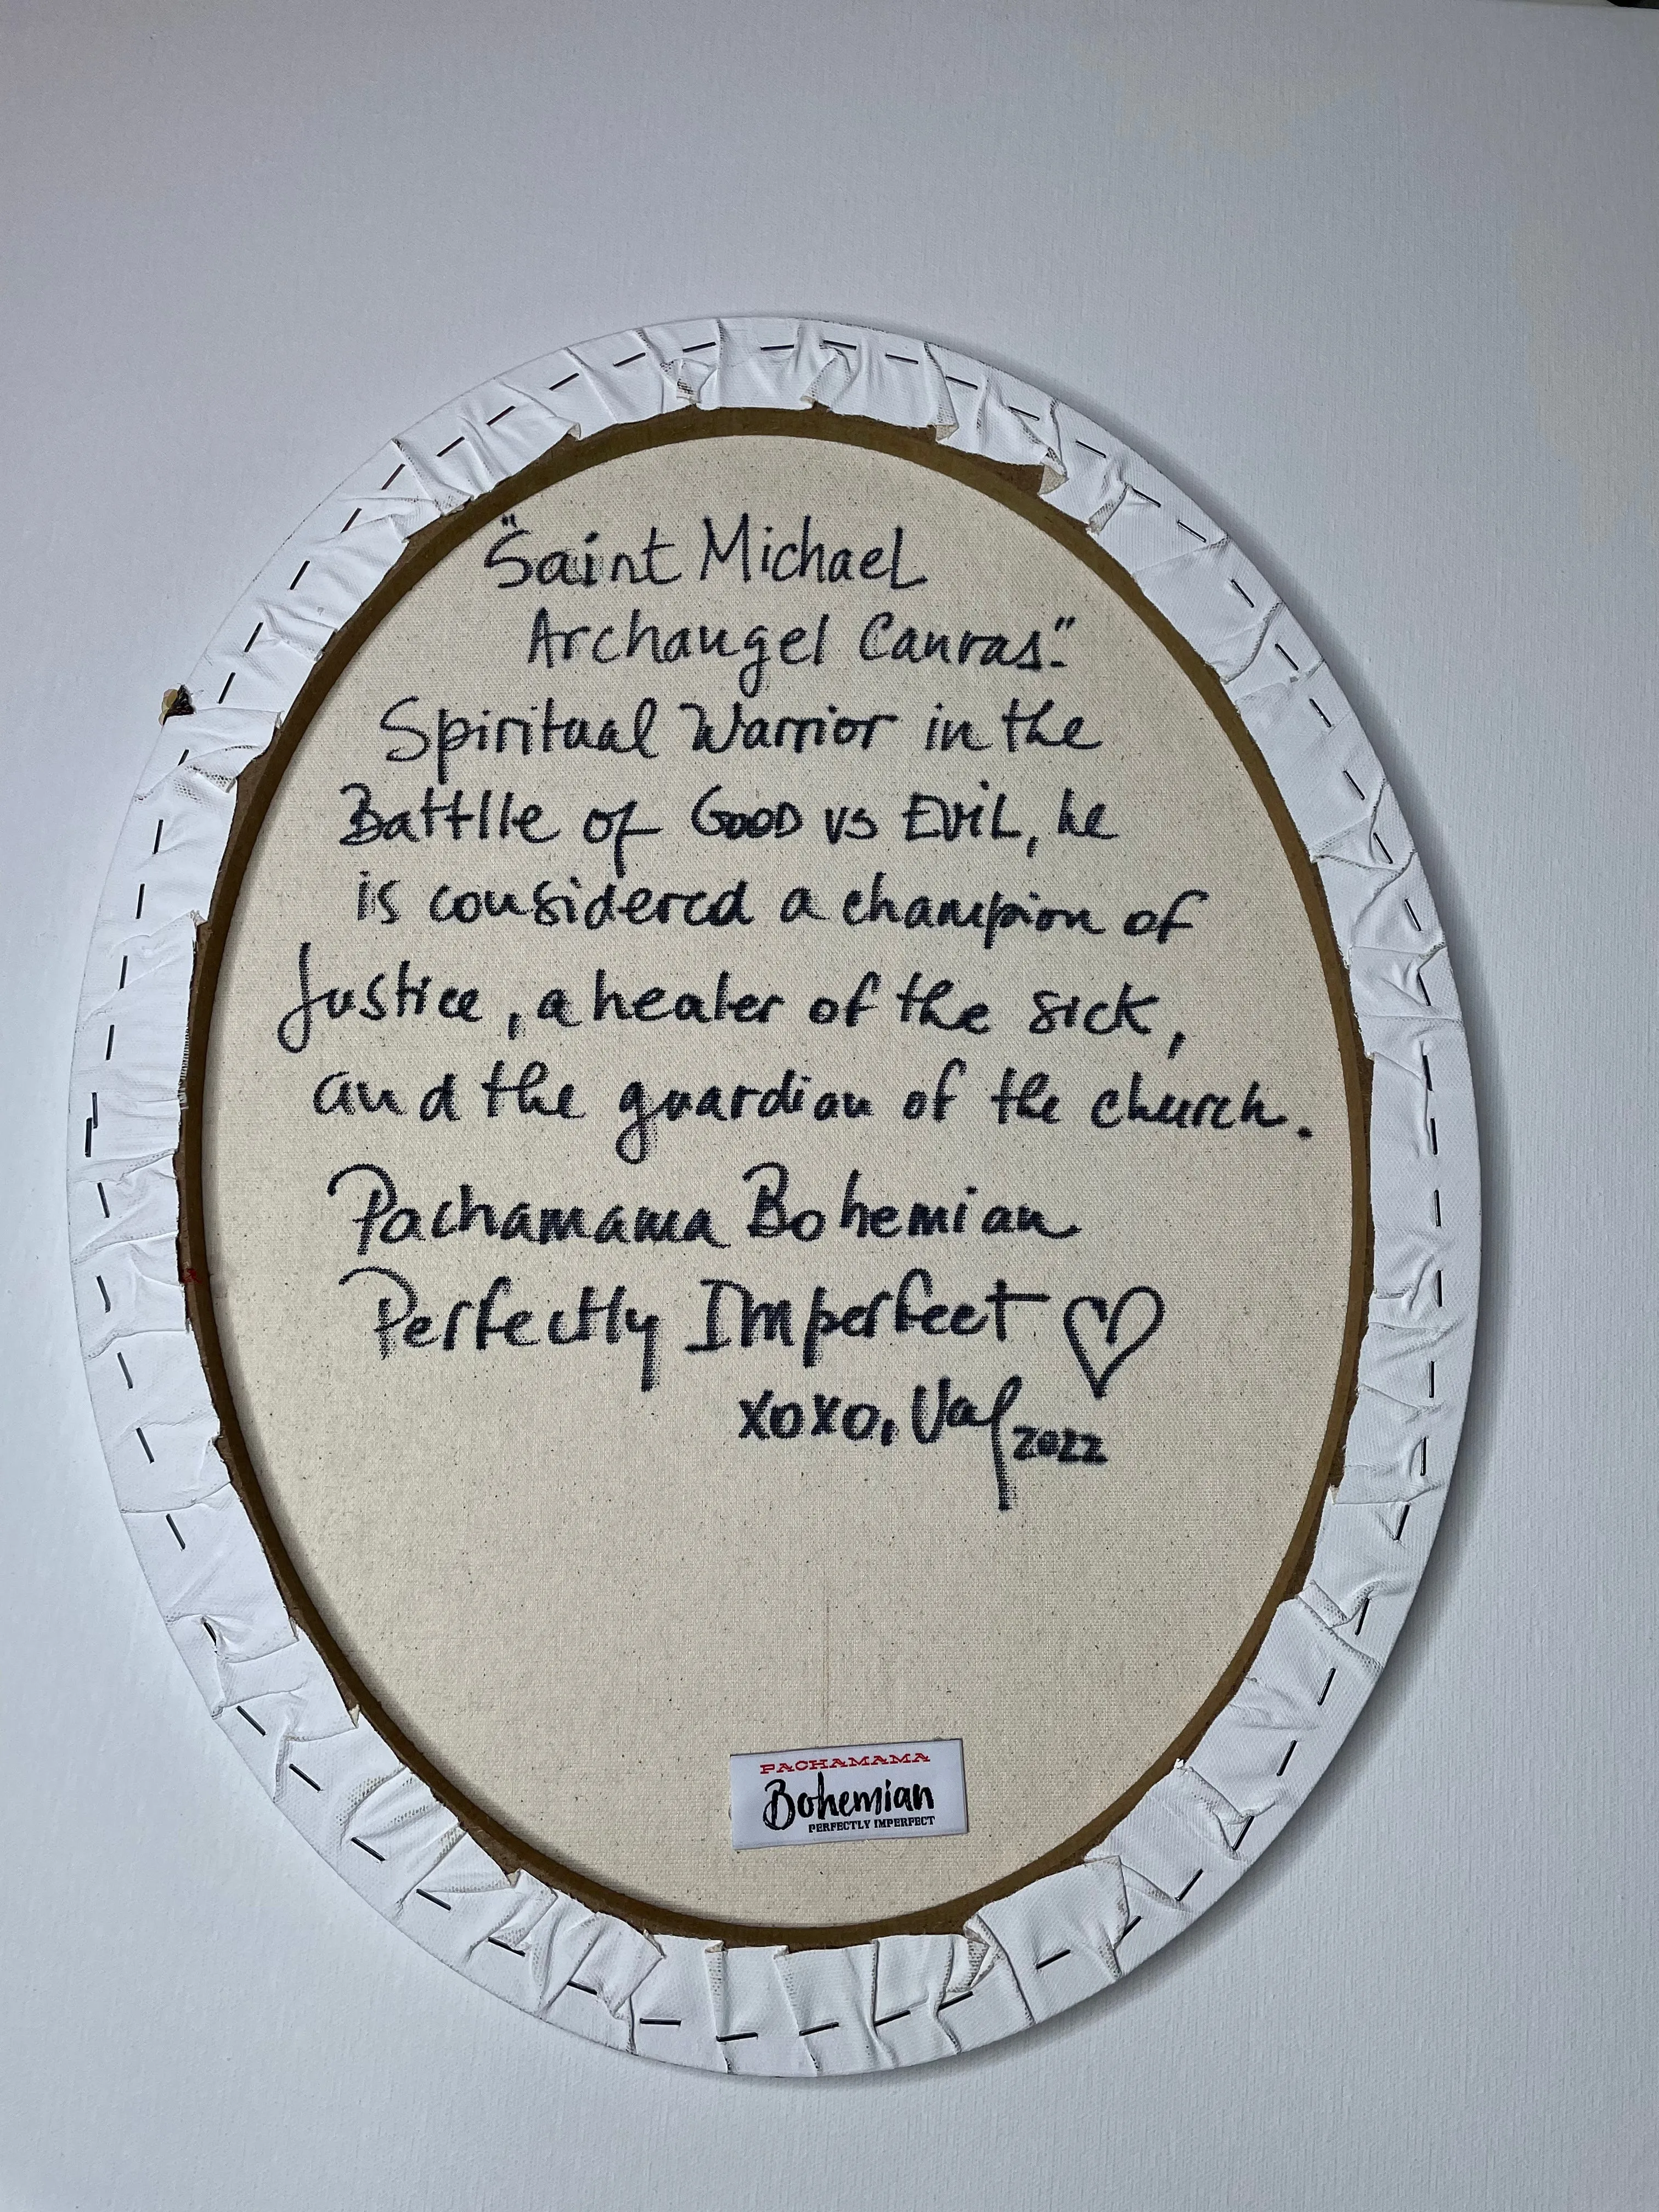 "Saint Michael
Archangel Canvas."
Spiritual Warrior in the
Battlle of GOOD vs EViL, he
is considered a champion of
Justice, a healer of the sick,
and the guardian of the church.
Pachamama Bohemian
Perfectly Imperfect ♡
xoxo, Val 2022
PACHAMAMA
Bohemian
PERFECTLY IMPERFECT